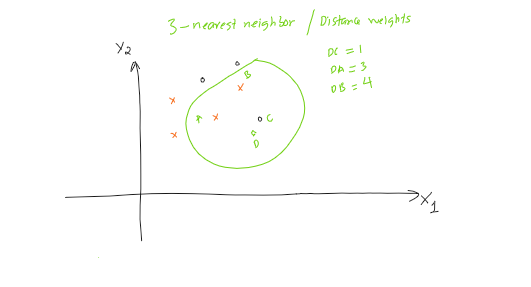 3-nearest neighbor / Distance weights
Y2
DC = 1
DA = 3
DB = 4
B
A
C
D
X1